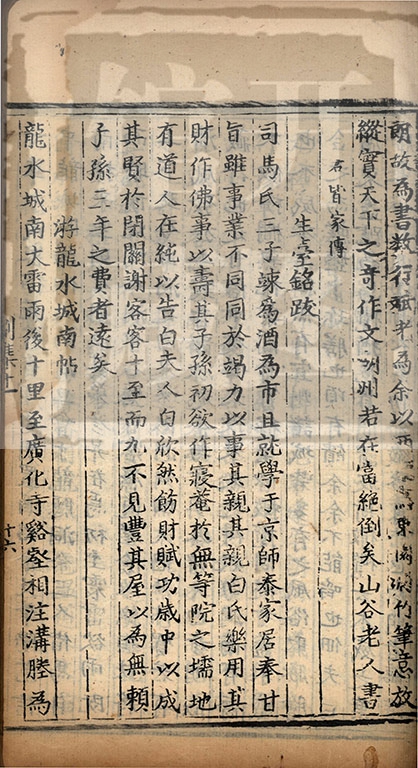 朗故為書數行為余以東澗竹筆意放
縱實天下之奇作文湖州若在當絕倒矣山谷老人書
名皆家傳
生臺銘跋
司馬氏三子竦為酒為市且就學于京師泰家居奉甘
旨雖事業不同同於竭力以事其親其親白氏樂用其
財作佛事以壽其子孫初欲作寢菴於無等院之壖地
有道人在純以告白夫人白欣然飭財賦功歲中以成
其賢於閉關謝客客十至而九不見豐其屋以為無賴
子孫三年之費者遠矣
游龍水城南帖
龍水城南大雷雨後十里至廣化寺谿壑相注溝塍為
十六